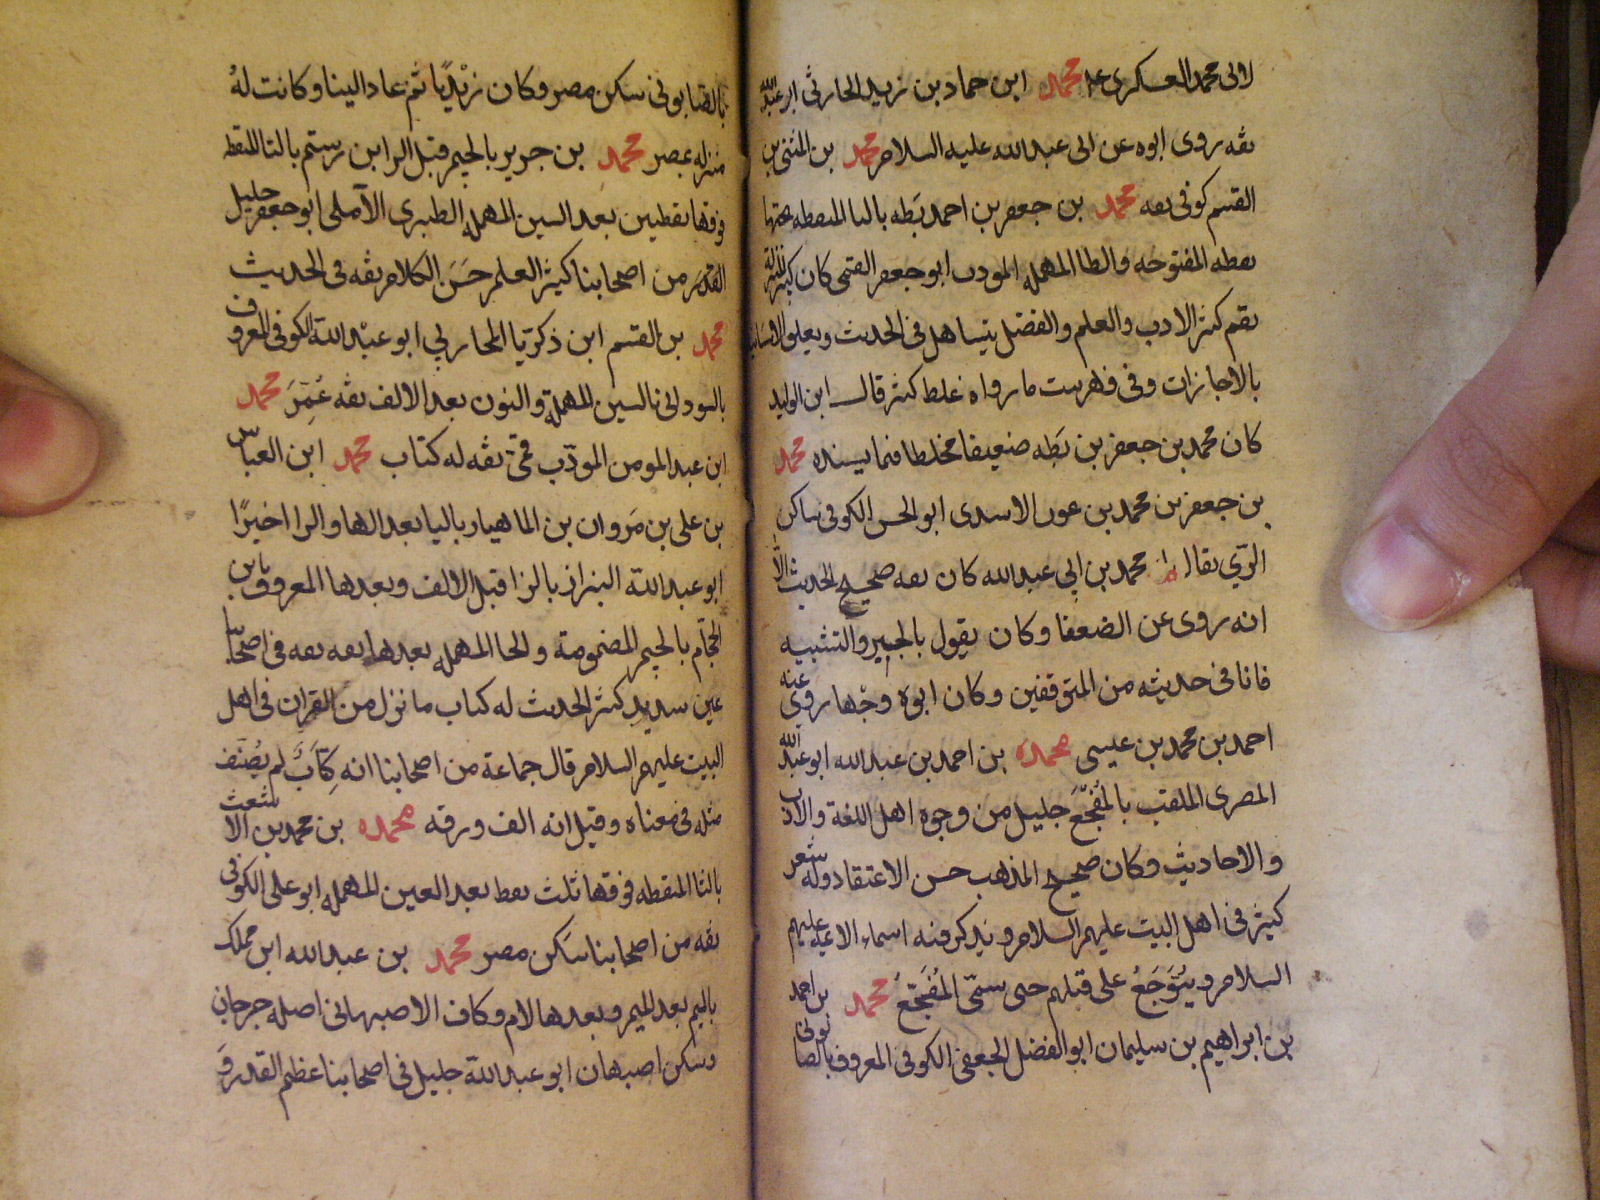 لابى محمد العسكرى عليه محمد ابن حماد بن زيد الحارثى ابو عبد الله
ثقه روى ابوه عن ابى عبد الله عليه السلام محمد بن المثنى بن
القسم كوفى ثقه محمد بن جعفر بن احمد بَطه بالبا المنقطه تحتها
نقطه المفتوحه والطا المهمله المودب ابو جعفر القمى كان كبير المنزلة
بقم كثير الادب والعلم والفضل يتساهل فى الحديث ويعلق الاسانيد
بالاجازات وفى فهرست ما رواه غلط كثير قال ابن الوليد
كان محمد بن جعفر بن بَطه ضعيفا مخلطا فيما يسنده محمد
بن جعفر بن محمد بن عون الاسدى ابو الحسن الكوفى ساكن
الرّي يقال له محمد بن ابي عبد الله كان ثقه صحيح الحديث الّا
انه روى عن الضعفا وكان يقول بالجبر والتشبيه
فانا فى حديثه من المتوقفين وكان ابوه وجها روى عنه
احمد بن محمد بن عيسى محمد بن احمد بن عبد الله ابو عبد الله
المصرى الملقب بالمُفَجّعَ جليل من وجوه اهل اللغة والادب
والاحاديث وكان صحيح المذهب حسن الاعتقاد وله شعر
كثير فى اهل البيت عليهم السلام ويذكر فيه اسماء الائمه عليهم
السلام ويتَوَجَعُ على قتلهم حتى سمّى المُفَجّعَ محمد بن احمد
بن ابراهيم بن سليمان ابو الفضل الجعفى الكوفى المعروف بالصابونى
بالصابونى سكن مصر وكان زيْديًا ثم عاد الينا وكانت لهُ
منزله بمصر محمد بن جرير بالجيم قبل الرا ابن رستم بالتا المنقطه
فوقها نقطتين بعد السين المهمله الطبرى الآملى ابو جعفر جليل
القدر من اصحابنا كثير العلم حَسَن الكلام ثقه فى الحديث
محمد بن القسم ابن ذكريّا المحاربي ابو عبْد اللّه الكوفى المعروف
بالسودانى بالسين المهملة والنون بعد الالف ثقه عُمِّرَ محمد
ابن عبد المومن المودّب قمّى ثقه له كتاب محمد ابن العباس
بن على بن مَروان بن الماهيار باليا بعد الها والرا اخيرًا
ابو عبد اللّه البزاز بالزا قبل الالف وبعدها المعروف بابن
الحجّام بالجيم المضمومة والحا المهمله بعدها ثقه ثقه فى اصحابنا
عين سديد كثير الحديث له كتاب ما نزل من القران فى اهل
البيت عليهم السلام قال جماعة من اصحابنا انه كِتَابٌ لم يُصَنّف
مثله فى معناه وقيل انه الف ورقه محمد بن محمد بن الاشعث
بالثا المنقطه فوقها ثلث نقط بعد العين المهمله ابو على الكوفى
ثقه من اصحابنا سَكن مصر محمد بن عبد الله ابن مملك
بالميم بعد الميم وبعدها لام وكاف الاصبهانى اصله جرجان
وسكن اصبهان ابو عبد اللّه جليل فى اصحابنا عظيم القدر وَ